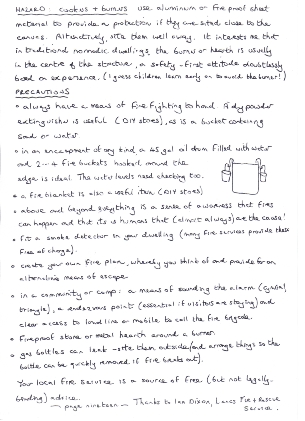 HAZARD: cookers & burners use aluminium or fireproof sheet
material to provide a protection if they are sited close to the
canvas. Alternatively, site them well away. It interests me that
in traditional nomadic dwellings, the burner or hearth is usually
in the centre of the structure, a safety-first attitude doubtlessly
based on experience. (I guess children learn early on to avoid the burner!)
PRECAUTIONS
• always have a means of fire fighting to hand. A dry powder
extinguisher is useful (DIY stores), as is a bucket containing
sand or water
• in an encampment of any kind a 45 gal oil drum filled with water
and 2-4 fire buckets hooked around the
edge is ideal. The water levels need checking too.
• a fire blanket is also a useful item (DIY stores)
• above and beyond everything is a sense of awareness that fires
can happen and that it is humans that (almost always) are the cause!
• fit a smoke detector in your dwelling (many fire services provide these
free of charge).
• create your own fire plan, whereby you think of and provide for an
alternative means of escape
• in a community or camp: a means of sounding the alarm (cymbal,
triangle), a rendezvous point (essential if visitors are staying) and
clear access to land line or mobile to call the fire brigade.
• fireproof stone or metal hearth around a burner
• gas bottles can leak - site them outside (and arrange things so the
bottle can be quickly removed if fire breaks out).
Your local fire service is a source of free (but not legally
binding) advice.
— page nineteen — Thanks to Ian Dixon, Lancs Fire & Rescue
Service.